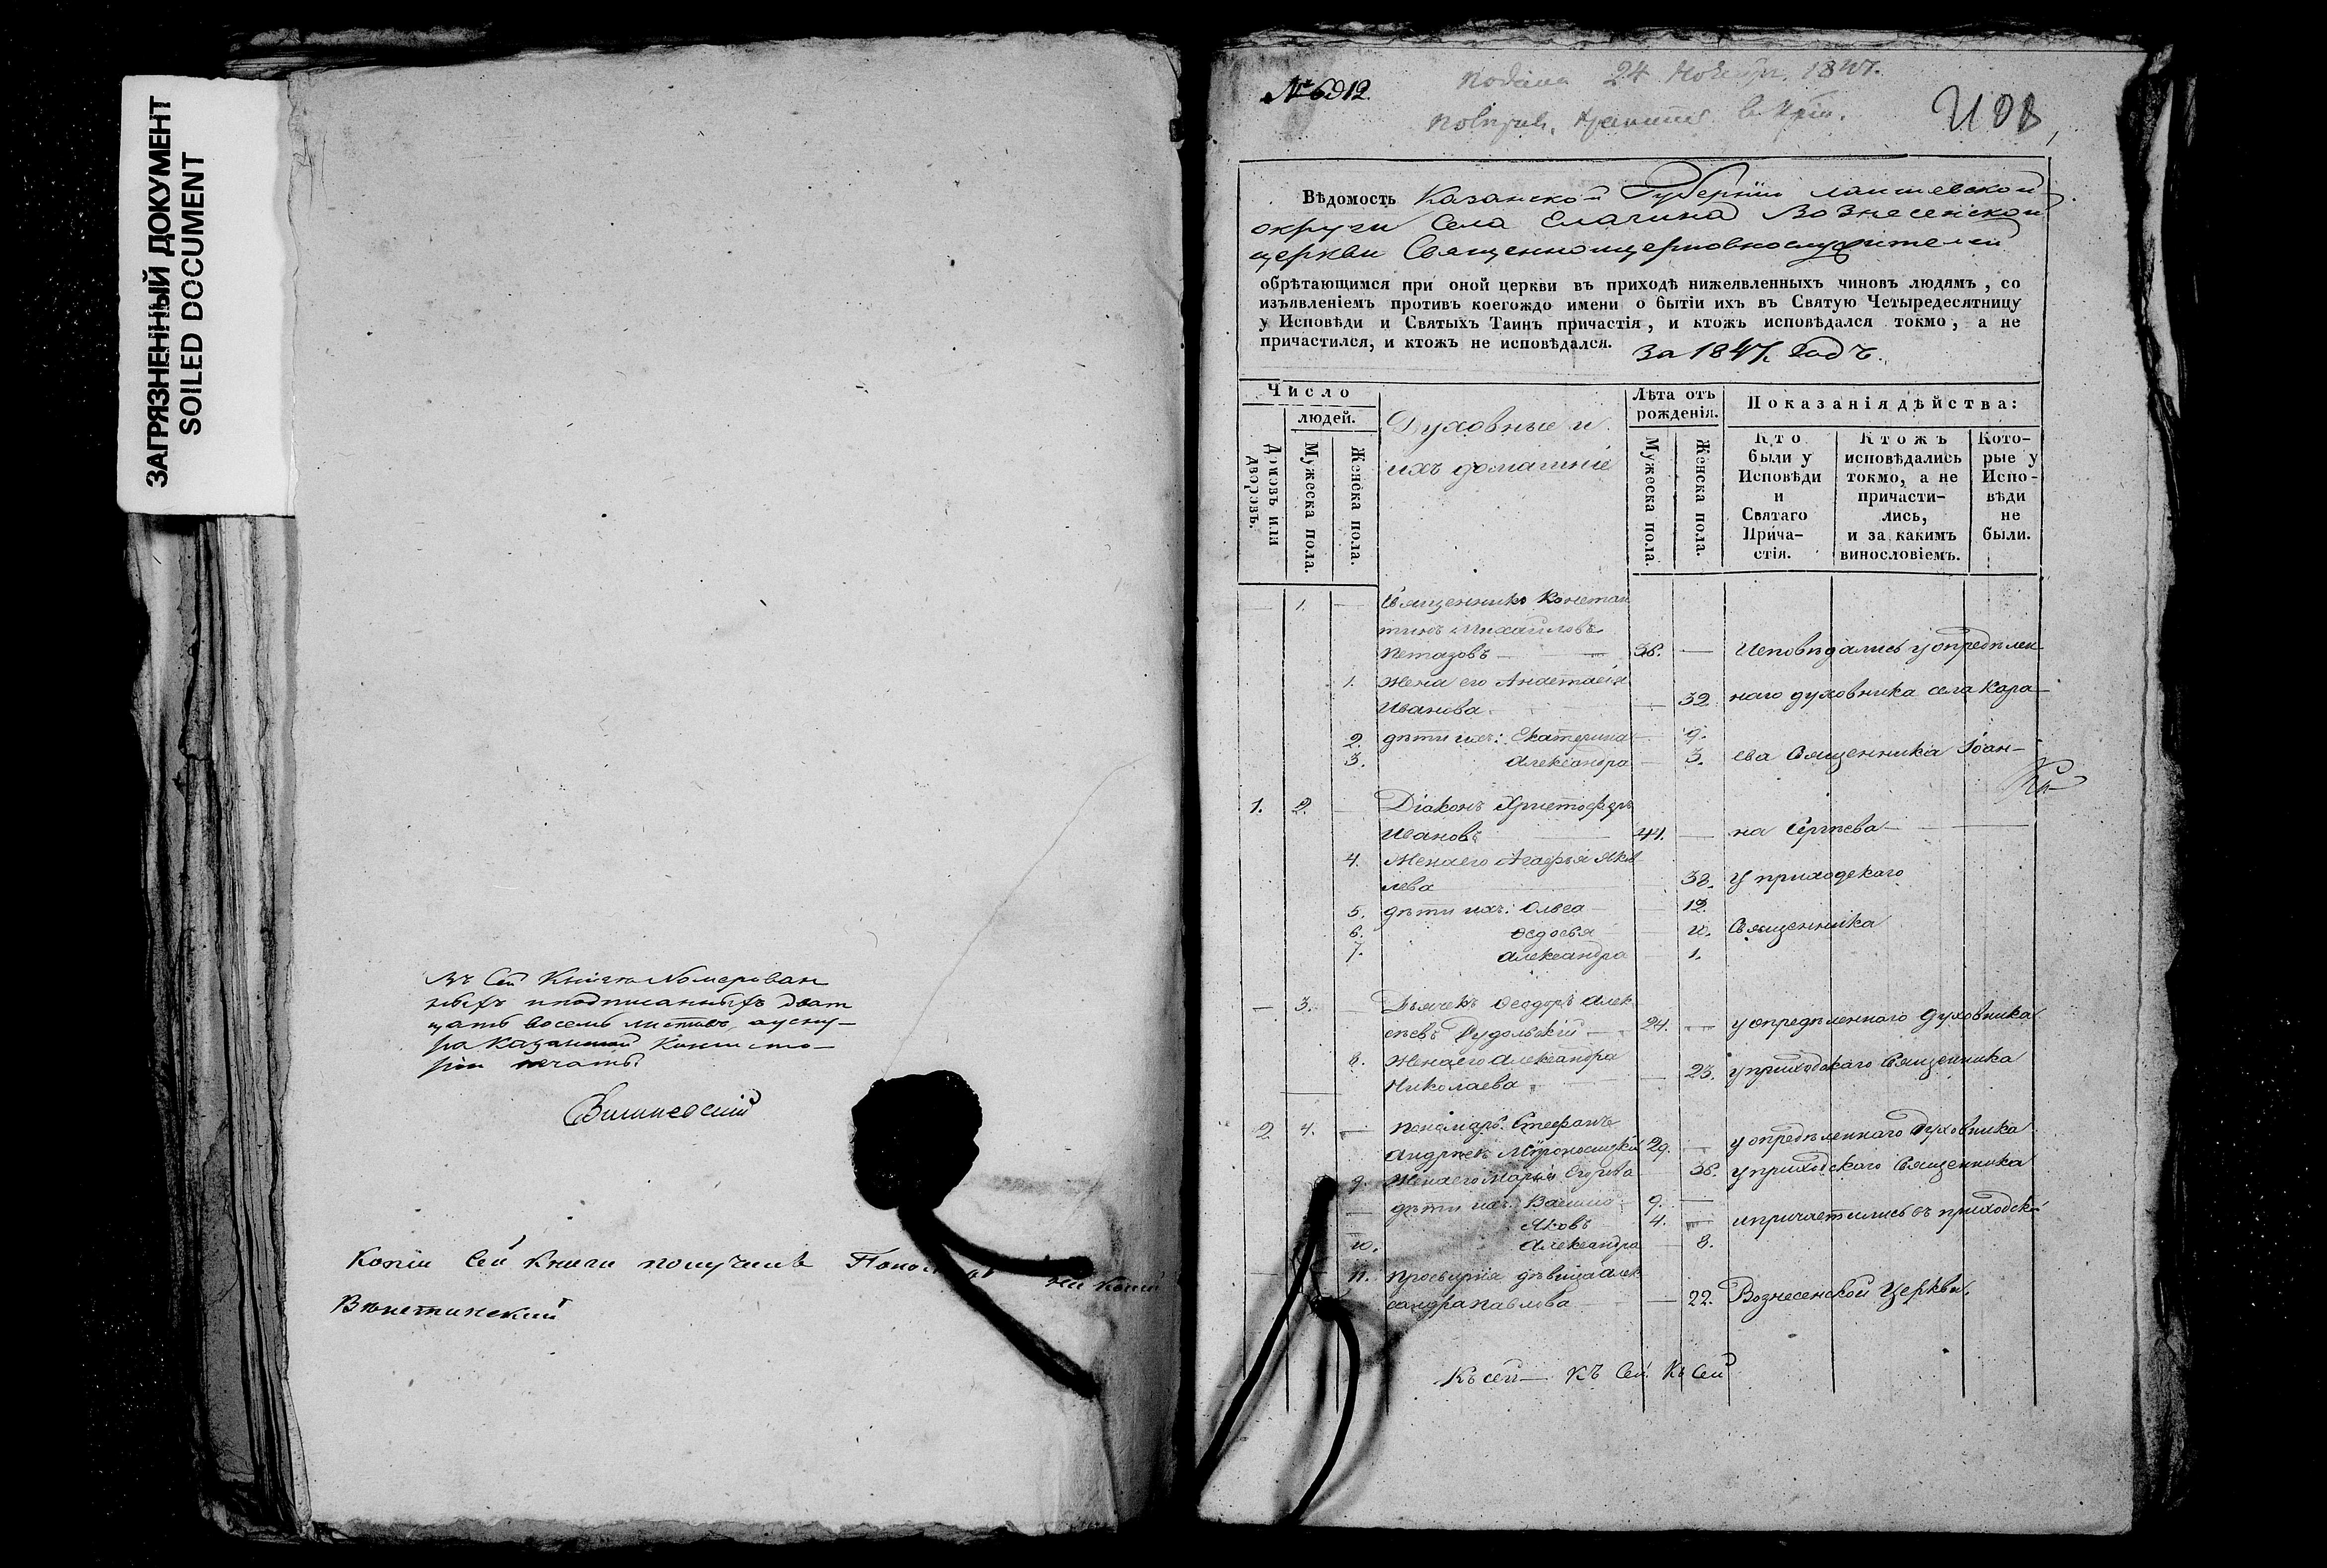 ЗАГРЯЗНЕННЫЙ ДОКУМЕНТ
SOILED DOCUMENT
Въ Сей Книге Номерован
ныхъ иподписанныхъ дват
цать восемь листовъ, ау сну-
ра Казанской Консисто-
ріи печать.
Вишневскій
Копіи Сей Книги получилъ
подана 24 1847.
Вѣдомость Казанской Губерніи лаишевской
округи Села Елагина Вознесенской
церкви Священноицерковнослужителей
обрѣтающимся при оной церкви въ приходѣ нижеявленныхъ чиновъ людямъ, со
изъявленіемъ противъ коегождо имени о бытіи ихъ въ Святую Четыредесятницу
у Исповѣди и Святыхъ Таинъ причастія, и ктожъ исповѣдался токмо, а не
причастился, и ктожъ не исповѣдался. За 1847. Годъ.
Число
людей.
Домовъ или дворовъ.
Мужеска пола.
Женска пола.
Духовные и
ихъ домашніе
Лѣта отъ рожденія.
Мужеска пола.
Женска пола.
Показанія дѣйства:
Кто были у Исповѣди и Святаго Причастія.
Ктожъ исповѣдались токмо, а не причастились, и за какимъ винословіемъ.
Которые у Исповѣди не были.
1. Священникъ Констан
тинъ Михайловъ
38. — Исповѣдались у опредѣлен
1. Жена его Анастасія
Иванова 32. наго духовника села Кара-
2. дѣти ихъ: Екатерина 9.
3. Александра 3. ева Священника Іоан-
1. 2. Діаконъ Христофоръ
Ивановъ 44. — на Сергѣева
4. Жена его Агафья Яков
лева 38. у приходскаго
5. дѣти ихъ: Ольга 12.
6. Ѳедосья Священника
7. Александра 1.
3. Дьячекъ Ѳеодоръ Алек
сѣевъ Рудольскій 24. у опредѣленнаго Духовника
8. Жена его Александра
Николаева 23. у приходскаго Священника
2 4. Пономарь Стефанъ
Андреевъ Мѵроносицкій 29. у опредѣленнаго Духовника
9. Жена его Марія Егорова 36. у приходскаго Священника
дѣти ихъ: Василій 9.
Яковъ 4. ипричастились въ приходской
10. Александра 8.
11. Просвирня дѣвица Алек
сандра Павлова 22. Вознесенской Церкви.
Къ сей — Къ Сей Къ Сей